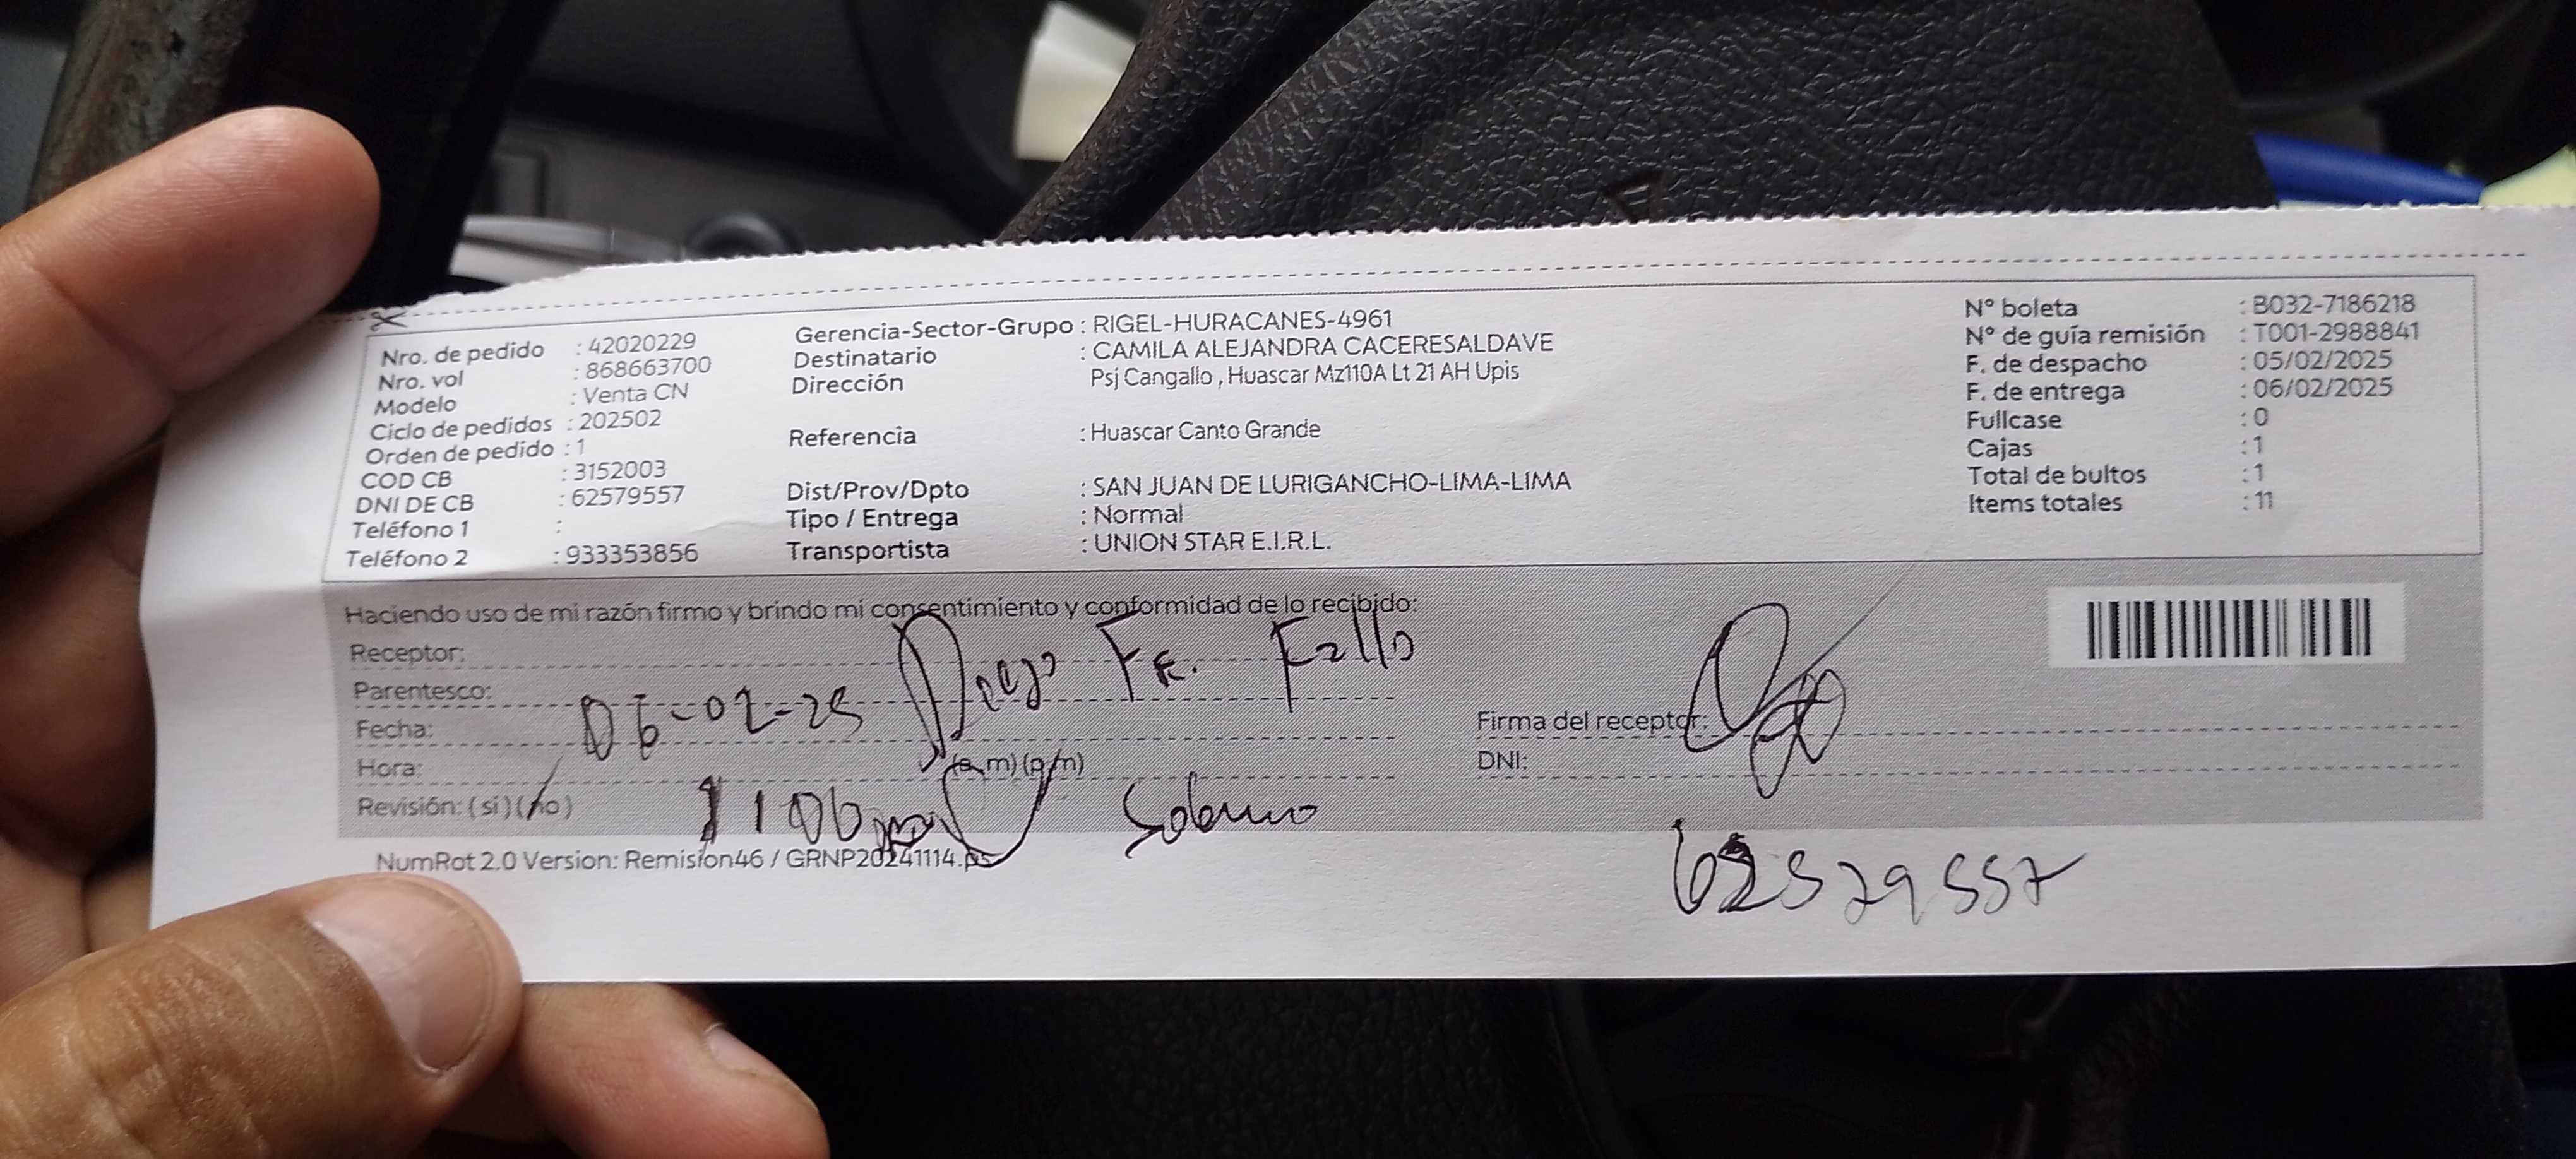 Nro. de pedido : 42020229
Nro. vol : 868663700
Modelo : Venta CN
Ciclo de pedidos : 202502
Orden de pedido : 1
COD CB : 3152003
DNI DE CB : 62579557
Teléfono 1 :
Teléfono 2 : 933353856
Gerencia-Sector-Grupo : RIGEL-HURACANES-4961
Destinatario : CAMILA ALEJANDRA CACERESALDAVE
Dirección Psj Cangallo , Huascar Mz110A Lt 21 AH Upis
Referencia : Huascar Canto Grande
Dist/Prov/Dpto : SAN JUAN DE LURIGANCHO-LIMA-LIMA
Tipo / Entrega : Normal
Transportista : UNION STAR E.I.R.L.
N° boleta : B032-7186218
N° de guía remisión : T001-2988841
F. de despacho : 05/02/2025
F. de entrega : 06/02/2025
Fullcase : 0
Cajas : 1
Total de bultos : 1
Items totales : 11
Haciendo uso de mi razón firmo y brindo mi consentimiento y conformidad de lo recibido:
Receptor:
Parentesco:
Fecha: 06-02-25
Hora: (a.m) (p/m)
Revisión: (si) (no)
Firma del receptor:
DNI:
62579557
NumRot 2.0 Version: Remision46 / GRNP20241114.ps